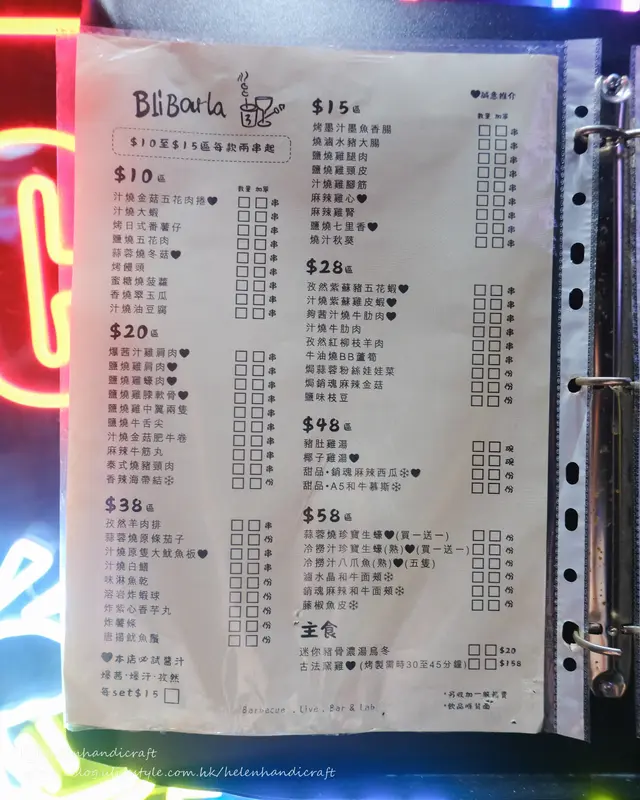 BliBarla
$10至$15區每款兩串起
$10區
數量 加單
汁燒金菇五花肉捲♥ 串
汁燒大蝦 串
烤日式番薯仔 串
鹽燒五花肉 串
蒜蓉燒冬菇♥ 串
烤饅頭 串
蜜糖燒菠蘿 串
香燒翠玉瓜 串
汁燒油豆腐 串
$20區
爆茜汁雞肩肉♥ 串
鹽燒雞肩肉♥ 串
鹽燒雞蠔肉♥ 串
鹽燒雞膝軟骨♥ 串
鹽燒雞中翼兩隻 串
鹽燒牛舌尖 串
汁燒金菇肥牛卷 串
麻辣牛筋丸 串
泰式燒豬頸肉 串
香辣海帶結❄ 份
$38區
孜然羊肉排 串
蒜蓉燒原條茄子 份
汁燒原隻大魷魚板♥ 串
汁燒白鱔 串
味淋魚乾 份
溶岩炸蝦球 份
炸紫心香芋丸 份
炸薯條 份
唐揚魷魚鬚 份
♥本店必試醬汁
爆茜·爆汗·孜然
每set$15
♥誠意推介
$15區
數量 加單
烤墨汁墨魚香腸 串
燒滷水豬大腸 串
鹽燒雞腿肉 串
鹽燒雞頸皮 串
汁燒雞腳筋 串
麻辣雞心♥ 串
麻辣雞腎 串
鹽燒七里香♥ 串
燒汁秋葵 串
$28區
孜然紫蘇豬五花蝦♥ 串
汁燒紫蘇雞皮蝦♥ 串
鵪茜汁燒牛肋肉♥ 串
汁燒牛肋肉 串
孜然紅柳枝羊肉 串
牛油燒BB蘆筍 串
焗蒜蓉粉絲娃娃菜 份
焗銷魂麻辣金菇 份
鹽味枝豆 份
$48區
豬肚雞湯 碗
椰子雞湯♥ 碗
甜品·銷魂麻辣西瓜❄♥ 份
甜品·A5和牛慕斯❄ 份
$58區
蒜蓉燒珍寶生蠔♥(買一送一) 份
冷撈汁珍寶生蠔(熟)♥(買一送一) 份
冷撈汁八爪魚(熟)♥(五隻) 份
滷水晶和牛面頰❄ 份
銷魂麻辣和牛面頰❄ 份
藤椒魚皮❄ 份
主食
迷你豬骨濃湯烏冬 $20
古法窯雞♥(烤製需時30至45分鐘) $158
*另收加一服務費
*飲品背頁面
Barbecue . Live . Bar & Lab
enhandicraft
blog.ulifestyle.com.hk/helenhandicraft